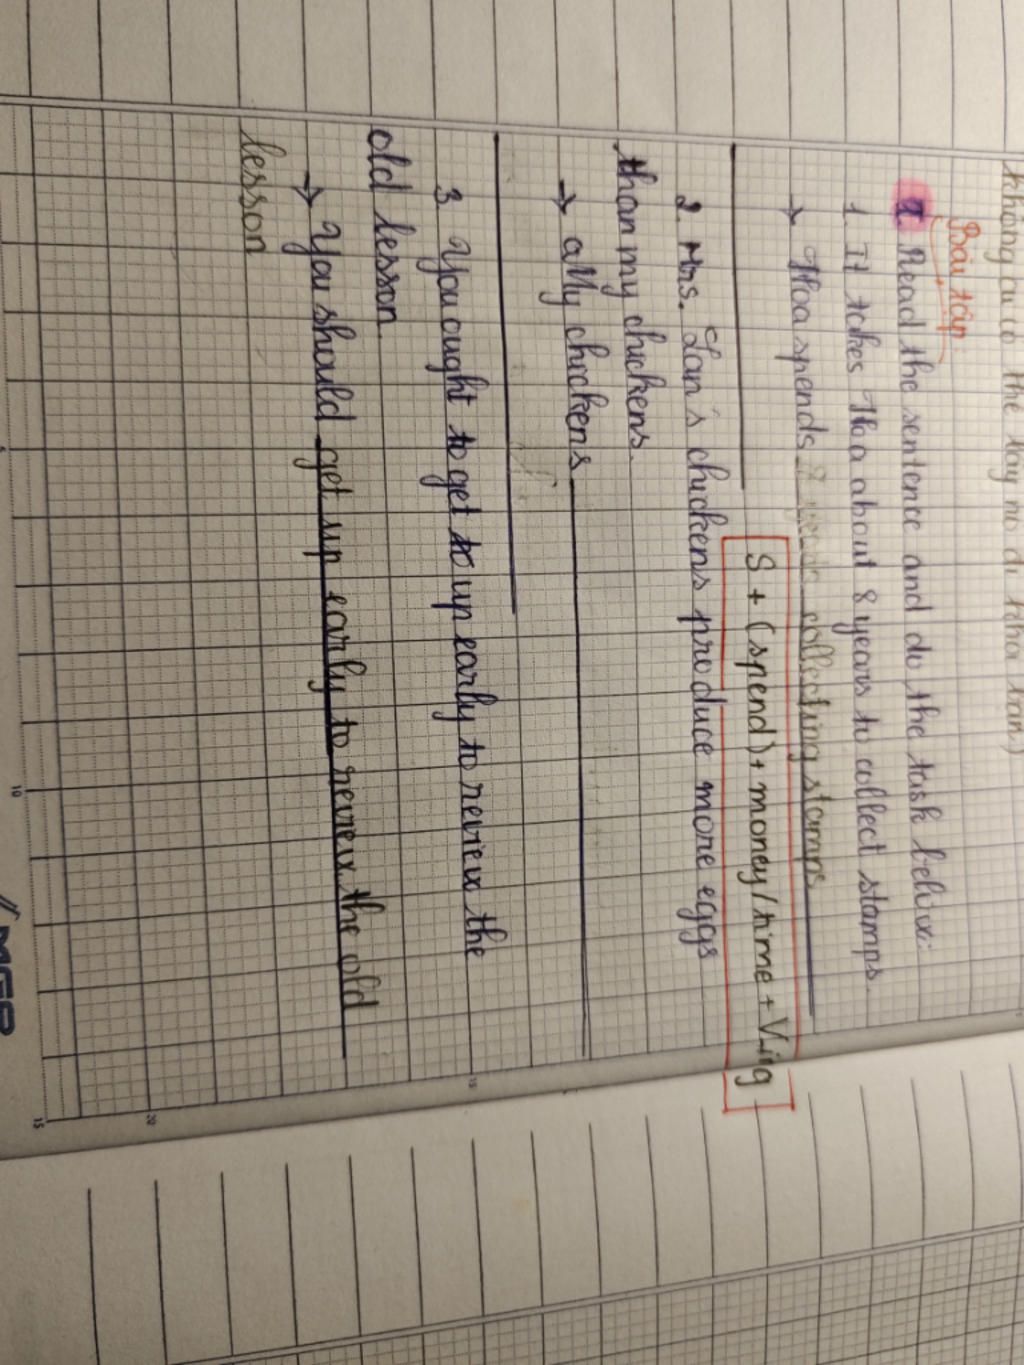 không
the
Bài tập
I. Read the sentence and do the task below:
1. It takes Hoa about 8 years to collect stamps.
→ Hoa spends 8 years collecting stamps
S + (spend) + money/time + V-ing
2. Mrs. Lan's chickens produce more eggs
than my chickens.
→ My chickens
3. You ought to get to up early to review the
old lesson.
→ You should get up early to review the old
lesson
5
10
15
20
15